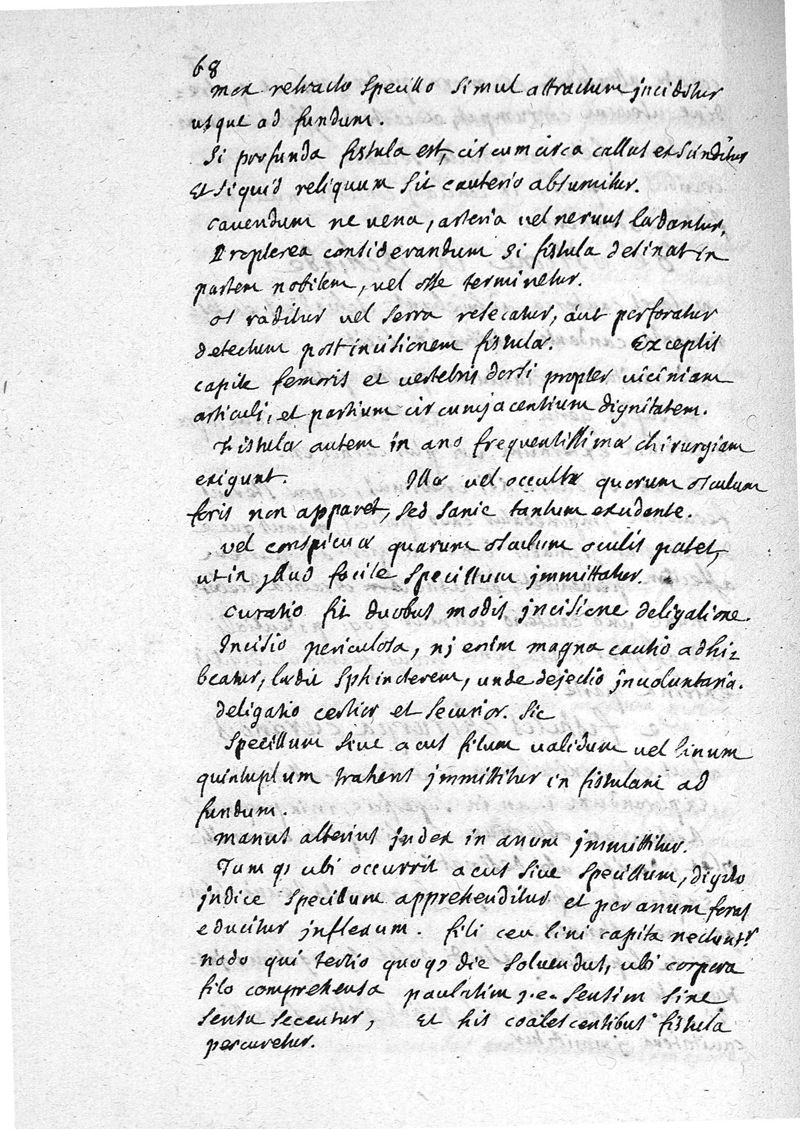 68
mox retracto specillo simul attractum jnciditur
usque ad fundum.
Si profunda fistula est, circumcirca callus exscinditur
Et siquid reliquum sit cauterio absumitur.
cavendum ne vena, arteria vel nervus lædantur.
Propterea considerandum si fistula desinat in
partem nobilem, vel osse terminetur.
os raditur vel serra resecatur, aut perforatur
detectum post incisionem fistulæ. Exceptis
capite femoris et vertebris dorsi propter viciniam
articuli, et partium circumjacentium dignitatem.
Fistulæ autem in ano frequentissimæ chirurgiam
exigunt. Illæ vel occultæ quarum osculum
foris non apparet, sed sanie tantum exudante.
vel conspicuæ quarum osculum oculis patet,
ut in jllud facile specillum jmmittatur.
curatio fit duobus modis jncisione deligatione.
Incisio periculosa, nj enim magna cautio adhi=
beatur, lædit sphincterem, unde dejectio jnvoluntaria.
deligatio certior et securior. Sic
Specillum sive acus filum validum vel linum
quintuplum trahens jmmittitur in fistulam ad
fundum.
manus alterius jndex in anum jmmittitur.
Tumq3 ubi occurrit acus sive specillum, digito
jndice specillum apprehenditur et per anum foras
educitur jnflexum. fili ceu lini capita nectuntr
nodo qui tertio quoq3 die solvendus, ubi corpora
filo comprehensa paulatim j.e. sensim sine
sensu secentur, Et his coalescentibus fistula
percuretur.